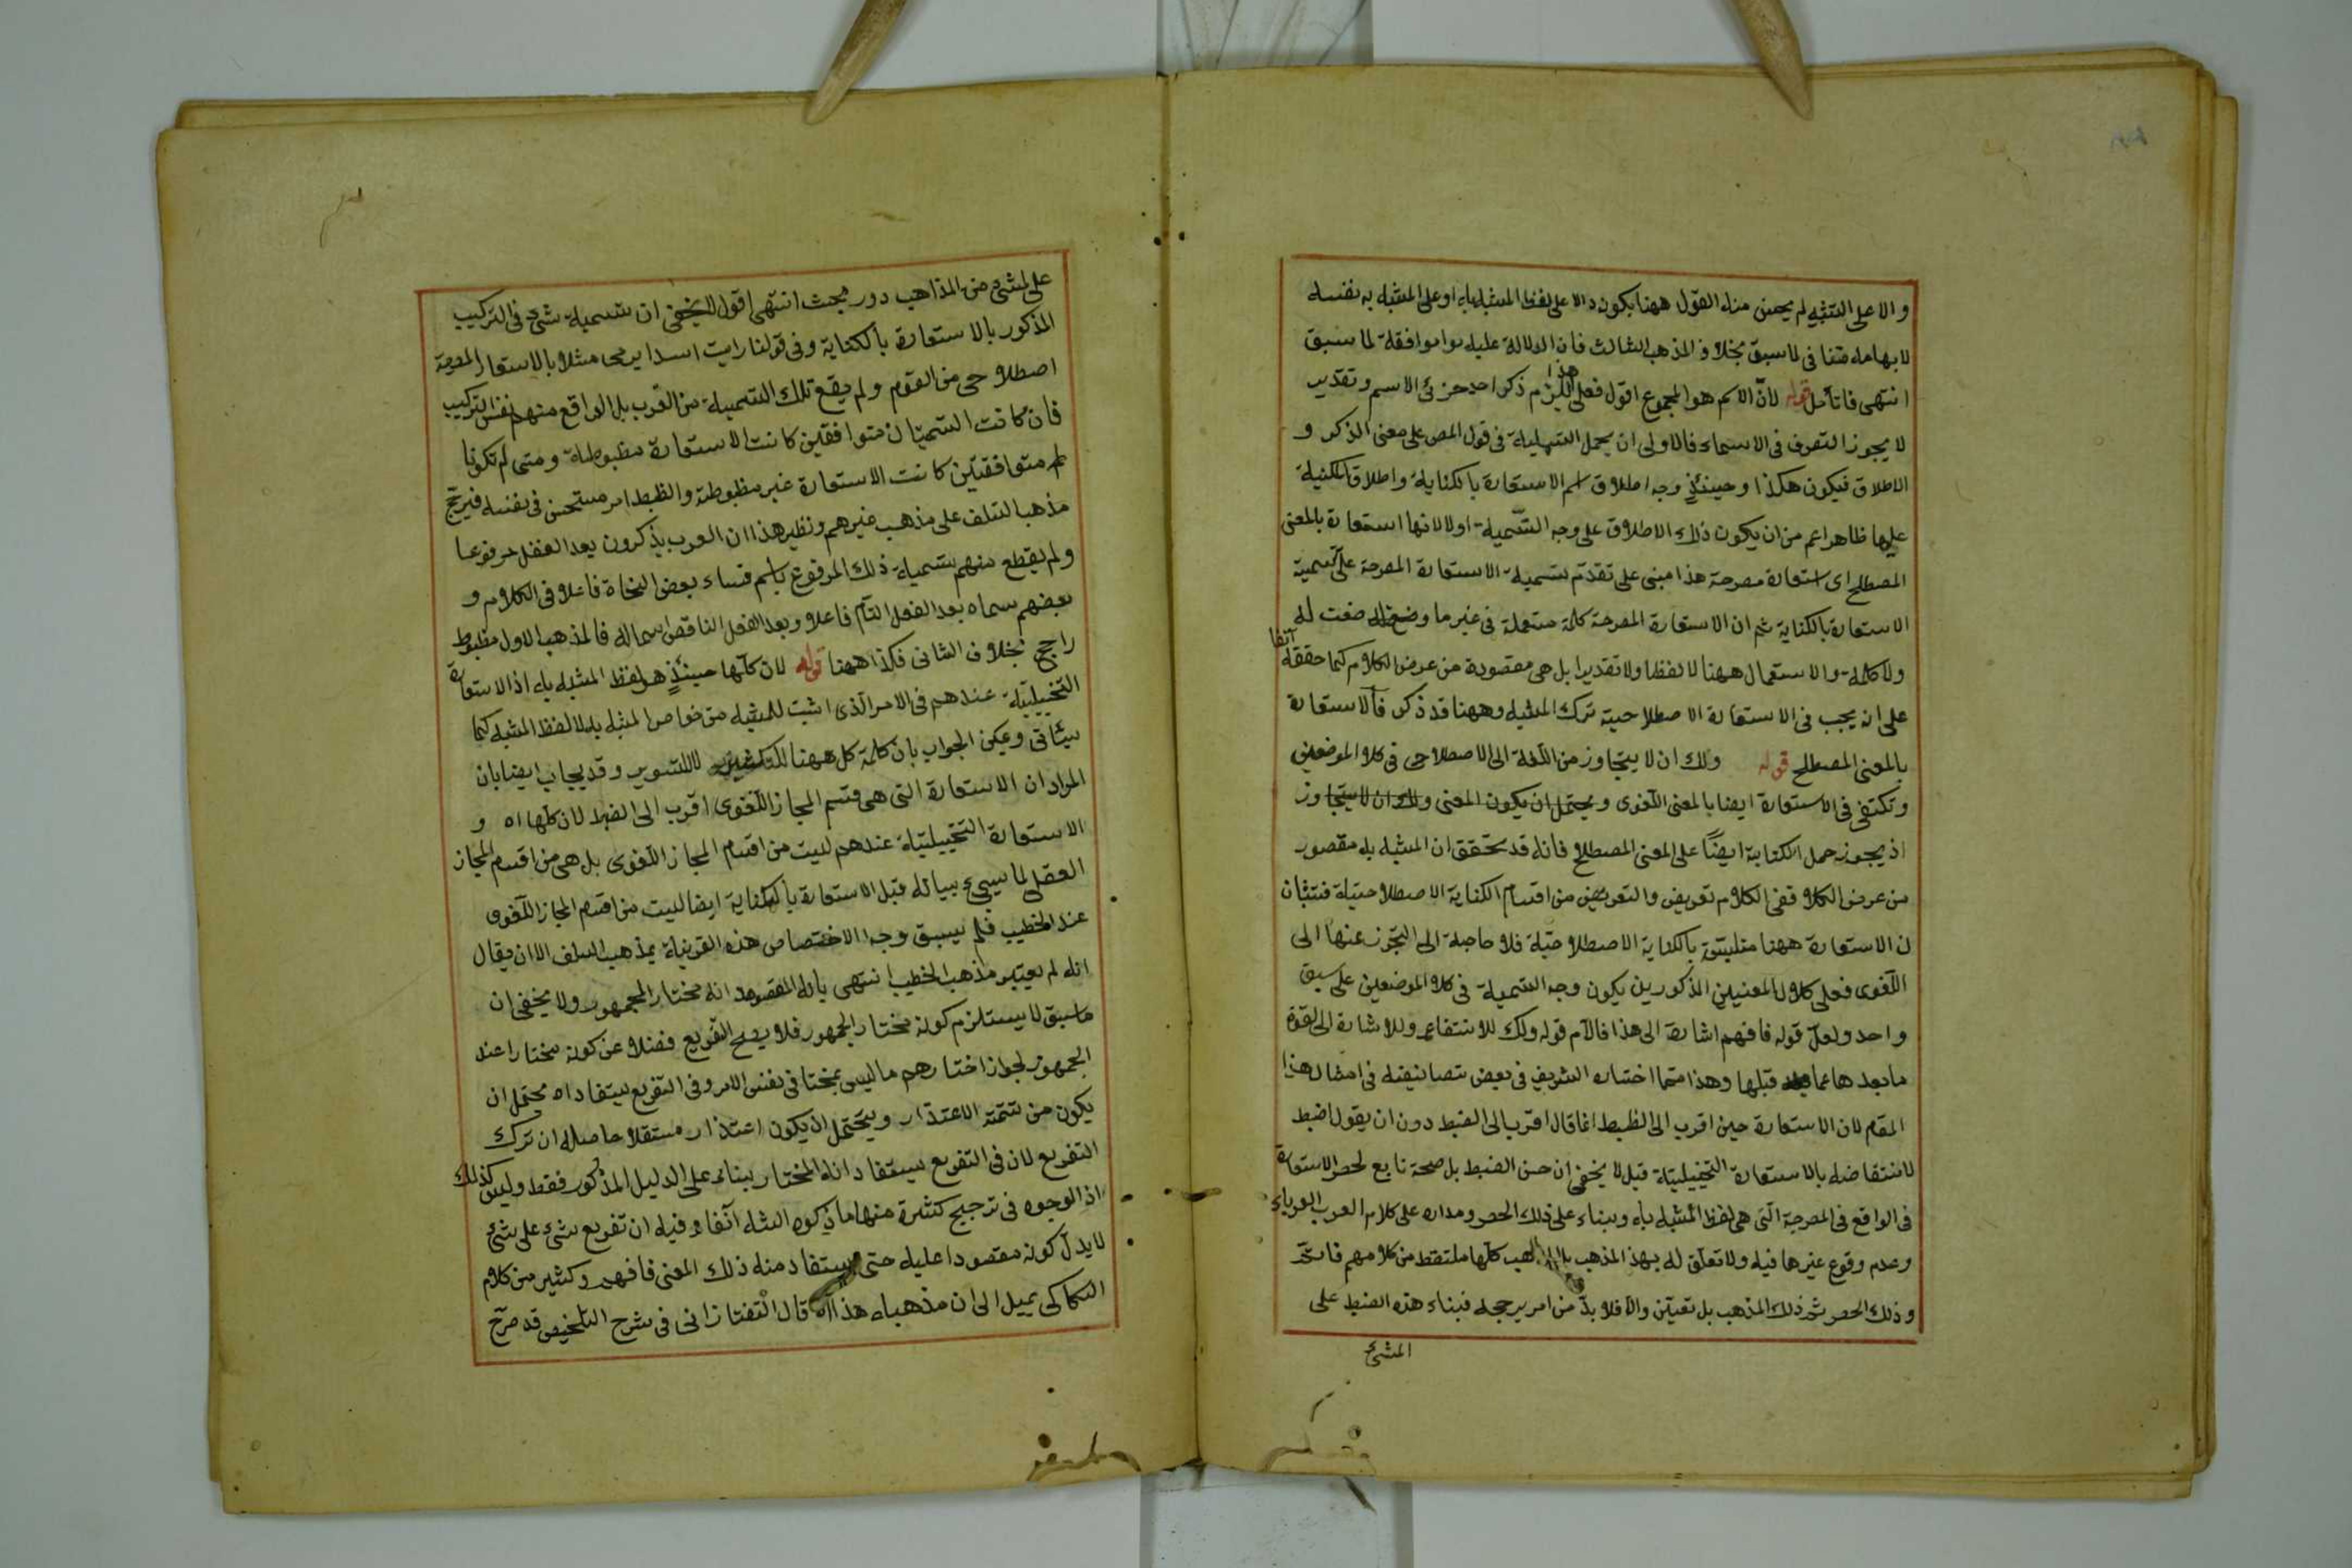 والا على التشبيه لم يحسن منه القول ههنا بكون دالا على لفظ المشبه به او على المشبه به نفسه
لابهامه متنا فى لما سبق بخلاف المذهب الثالث فان الدلالة عليه موافقة لما سبق
انتهى فاتأمل قوله لانّ الاسم هو المجموع اقول فعلى هذا يلزم ذكر احد جزئ الاسم وتقدير
لا يجوز التصرف فى الاسماء فالاولى ان يحمل التسمية فى قول المص على معنى الذكر و
الاطلاق فيكون هكذا وحينئذٍ وجه اطلاق اسم الاستعارة بالكناية واطلاق المكنية
عليها ظاهر اعم من ان يكون ذلك الاطلاق على وجه التسمية اولا لانها استعارة بالمعنى
المصطلح اى استعارة مصرحة هذا مبنى على تقدم تسمية الاستعارة المصرحة على تسمية
الاستعارة بالكناية ثم ان الاستعارة المصرحة كلمة مستعملة فى غير ما وضعت له
ولا كلمة والاستعمال ههنا لا لفظا ولا تقديرا بل هى مقصودة من عرض الكلام كما حققه آنفا
على انه يجب فى الاستعارة الاصطلاحية ترك المشبه وههنا قد ذكر فالاستعارة
بالمعنى المصطلح قوله ولك ان لا يتجاوز من اللغة الى الاصطلاحى فى كلا الموضعين
وتكتفى فى الاستعارة ايضا بالمعنى اللغوى ويحتمل ان يكون المعنى ولك ان لا يتجاوز
اذ يجوز حمل الكناية ايضًا على المعنى المصطلح فانه قد تحقق ان المشبه به مقصور
من عرض الكلام ففى الكلام تعريض والتعريض من اقسام الكناية الاصطلاحيّة فتثبان
ن الاستعارة ههنا متلبسة بالكناية الاصطلاحيّة فلا حاجة الى التجوز عنها الى
اللغوى فعلى كلا المعنيين المذكورين يكون وجه التسمية فى كلا الموضعين على سبق
واحد ولعلّ قوله فافهم اشارة الى هذا فاللام قوله ولك للانتفاع وللاشارة الى القوة
ما بعدها عما قبلها وهذا مما اختاره الشريف فى بعض تصانيفه فى امثال هذا
المقام لان الاستعارة حين اقرب الى الظبط انما قال اقرب الى الضبط دون ان يقول اضبط
لانتقاضه بالاستعارة التخييلية قيل لا يخفى ان حسن الضبط بل صحة تابع لحصر الاستعارة
فى الواقع فى المصرحة الّتى هى لفظ المشبه به وبناء على ذلك الحصر ومداره على كلام العرب العرباء
وعدم وقوع غيرها فيه ولا تعلّق له بهذ المذهب كلها ملتقط من كلامهم فاتحد
وذلك الحصر ثمه ذلك المذهب بل تعيّن والّا فلا بدّ من امر يرجحه فبناء هذه الضبط على
المشئ
على المشئ من المذاهب دور بحث انتهى اقول لا يخفى ان تسمية شئ فى التركيب
المذكور بالاستعارة بالكناية وفى قولنا رايت اسدا يرمى مثلا بالاستعار المصرحة
اصطلاحى من القوم ولم يقع تلك التسمية من العرب بل الواقع منهم نفس التركيب
فان كانت التسميتان متوافقين كانت الاستعارة مظبوطة ومتى لم تكونا
لم متوافقتين كانت الاستعارة غير مظبوطة والظبط امر مستحسن فى نفسه فيرجح
مذهب السلف على مذهب غيرهم ونظير هذا ان العرب يذكرون بعد الفعل مرفوعا
ولم يقطع منهم تسمية ذلك المرفوع باسم فتساء بعض النحاة فاعلا فى الكلام و
بعضهم سماه بعد الفعل التام فاعلا وبعد الفعل الناقص اسما له فالمذهب الاول مظبوط
راجح بخلاف الثانى فكذا ههنا قوله لان كلّها حينئذٍ هو لفظ المشبه به اذ الاستعارة
التخييليّة عندهم فى الامر الّذى اثبت للمشبه من خواص المشبه به لا لفظ المشبه كما
سيأتى ويمكن الجواب بان كلمة كل ههنا للتكثير لا للتسوير وقد يجاب ايضا بان
المراد ان الاستعارة التى هى قسم المجاز اللغوى اقرب الى الضبط لان كلّها اه و
الاستعارة التخييليّة عندهم ليست من اقسام المجاز اللغوى بل هى من اقسام المجاز
العقلى لما سيجىء بيانه قيل الاستعارة بالكناية ايضا ليست من اقسام المجاز اللغوى
عند الخطيب فلم يسبق وجه الاختصاص هذه القرينة بمذهب السلف الا ان يقال
انه لم يعتبر مذهب الخطيب انتهى بانه المقصود انه مختار الجمهور ولا يخفى ان
ما سبق لا يستلزم كونه مختار الجمهور فلا يصح التفريع فضلا عن كونه مختارا عند
الجمهور لجواز اختارهم ما ليس بمختا فى نفس الامر وفى التفريع ليتفاد اه محتمل ان
يكون من تتمة الاعتذار ويحتمل ان يكون اعتذار مستقلا حاصله ان ترك
التفريع لان فى التفريع يستفاد انه المختار بناء على الدليل المذكور فقط وليس كذلك
اذ الوجوه فى ترجيح كثيرة منها ما ذكره الشه آنفا وفيه ان تفريع شئ على شئ
لا يدلّ كونه مقصودا عليه حتى يستفاد منه ذلك المعنى فافهم وكثير من كلام
السكاكى يميل الى ان مذهبه هذا اه قال التفتازانى فى شرح التلخيص قد صرّح